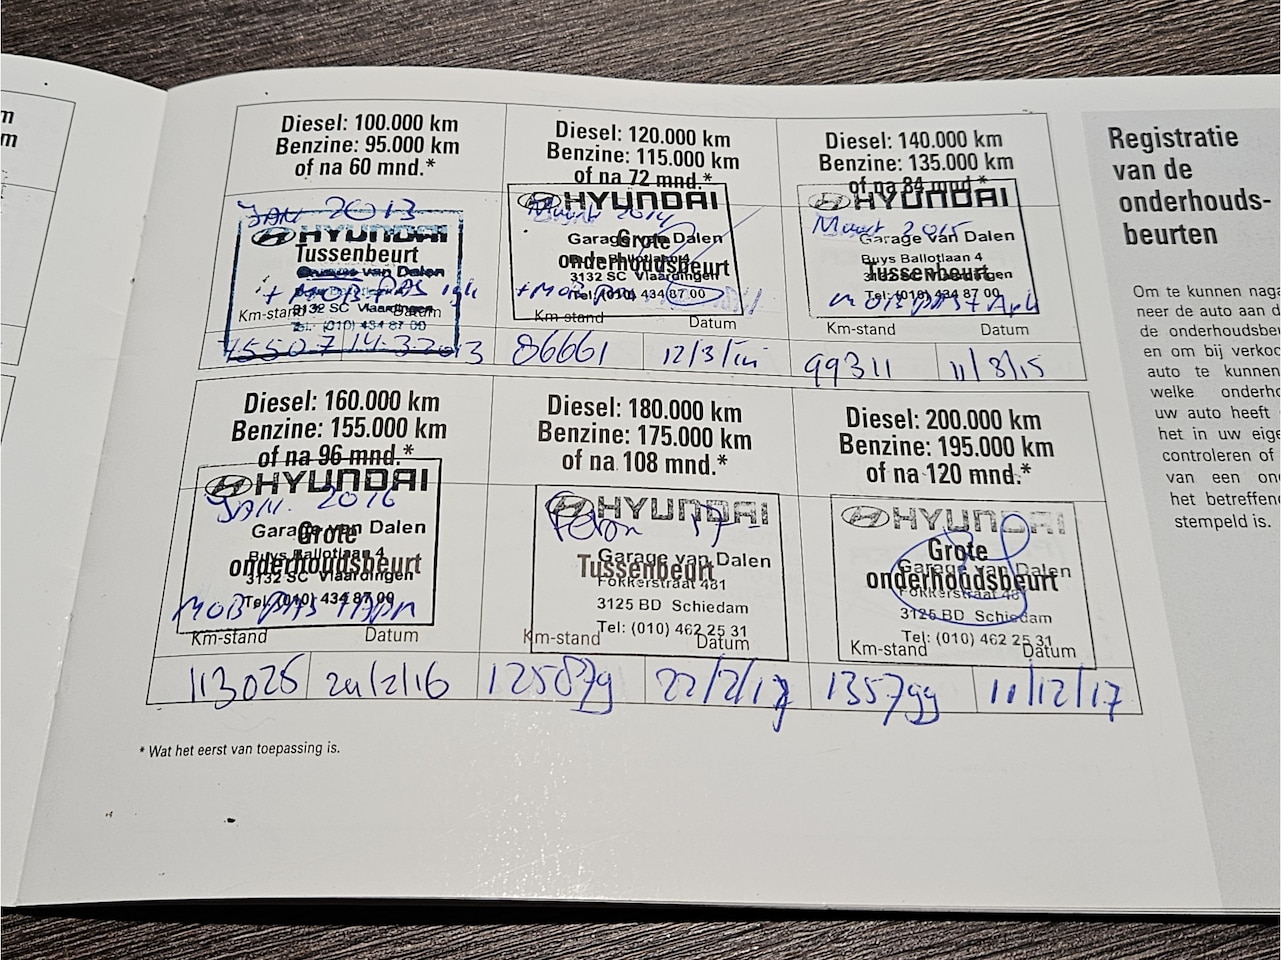 m
m
Diesel: 100.000 km
Benzine: 95.000 km
of na 60 mnd.*
JAN 2013
HYUNDAI
Tussenbeurt
van Dalen
+ MOB PAS
3132 SC Vlaardingen
Km-stand Datum
Tel: (010) 434 87 00
75507 14-3-2013
Diesel: 120.000 km
Benzine: 115.000 km
of na 72 mnd.*
HYUNDAI
Maart 2014
Garage van Dalen
Grote
onderhoudsbeurt
Buys Ballotlaan 4
3132 SC Vlaardingen
+ MOB PAS
Tel: (010) 434 87 00
Km-stand Datum
86661 12/3/
Diesel: 140.000 km
Benzine: 135.000 km
of na 84 mnd.*
HYUNDAI
Maart 2015
Garage van Dalen
Buys Ballotlaan 4
Tussenbeurt
3132 SC Vlaardingen
Tel: (010) 434 87 00
MOB PAS
Km-stand Datum
99311 11/8/15
Diesel: 160.000 km
Benzine: 155.000 km
of na 96 mnd.*
HYUNDAI
JAN. 2016
Garage van Dalen
Grote
onderhoudsbeurt
Buys Ballotlaan 4
3132 SC Vlaardingen
Tel: (010) 434 87 00
MOB PAS
Km-stand Datum
113026 /2/16
Diesel: 180.000 km
Benzine: 175.000 km
of na 108 mnd.*
HYUNDAI
17
Garage van Dalen
Tussenbeurt
Fokkerstraat 481
3125 BD Schiedam
Tel: (010) 462 25 31
Km-stand Datum
125879 22/2/17
Diesel: 200.000 km
Benzine: 195.000 km
of na 120 mnd.*
HYUNDAI
Grote
Garage van Dalen
onderhoudsbeurt
Fokkerstraat 481
3125 BD Schiedam
Tel: (010) 462 25 31
Km-stand Datum
135799 11/12/17
* Wat het eerst van toepassing is.
Registratie
van de
onderhouds-
beurten
Om te kunnen naga
neer de auto aan d
de onderhoudsbe
en om bij verkoo
auto te kunnen
welke onderho
uw auto heeft
het in uw eige
controleren of
van een on
het betreffen
stempeld is.